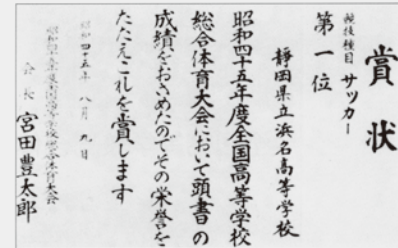 賞状
競技種目 サッカー
第一位
静岡県立浜名高等学校
昭和四十五年度全国高等学校
総合体育大会において頭書の
成績をおさめたのでその栄誉を
たたえこれを賞します
昭和四十五年 八月 九日
会長 宮田豊太郎